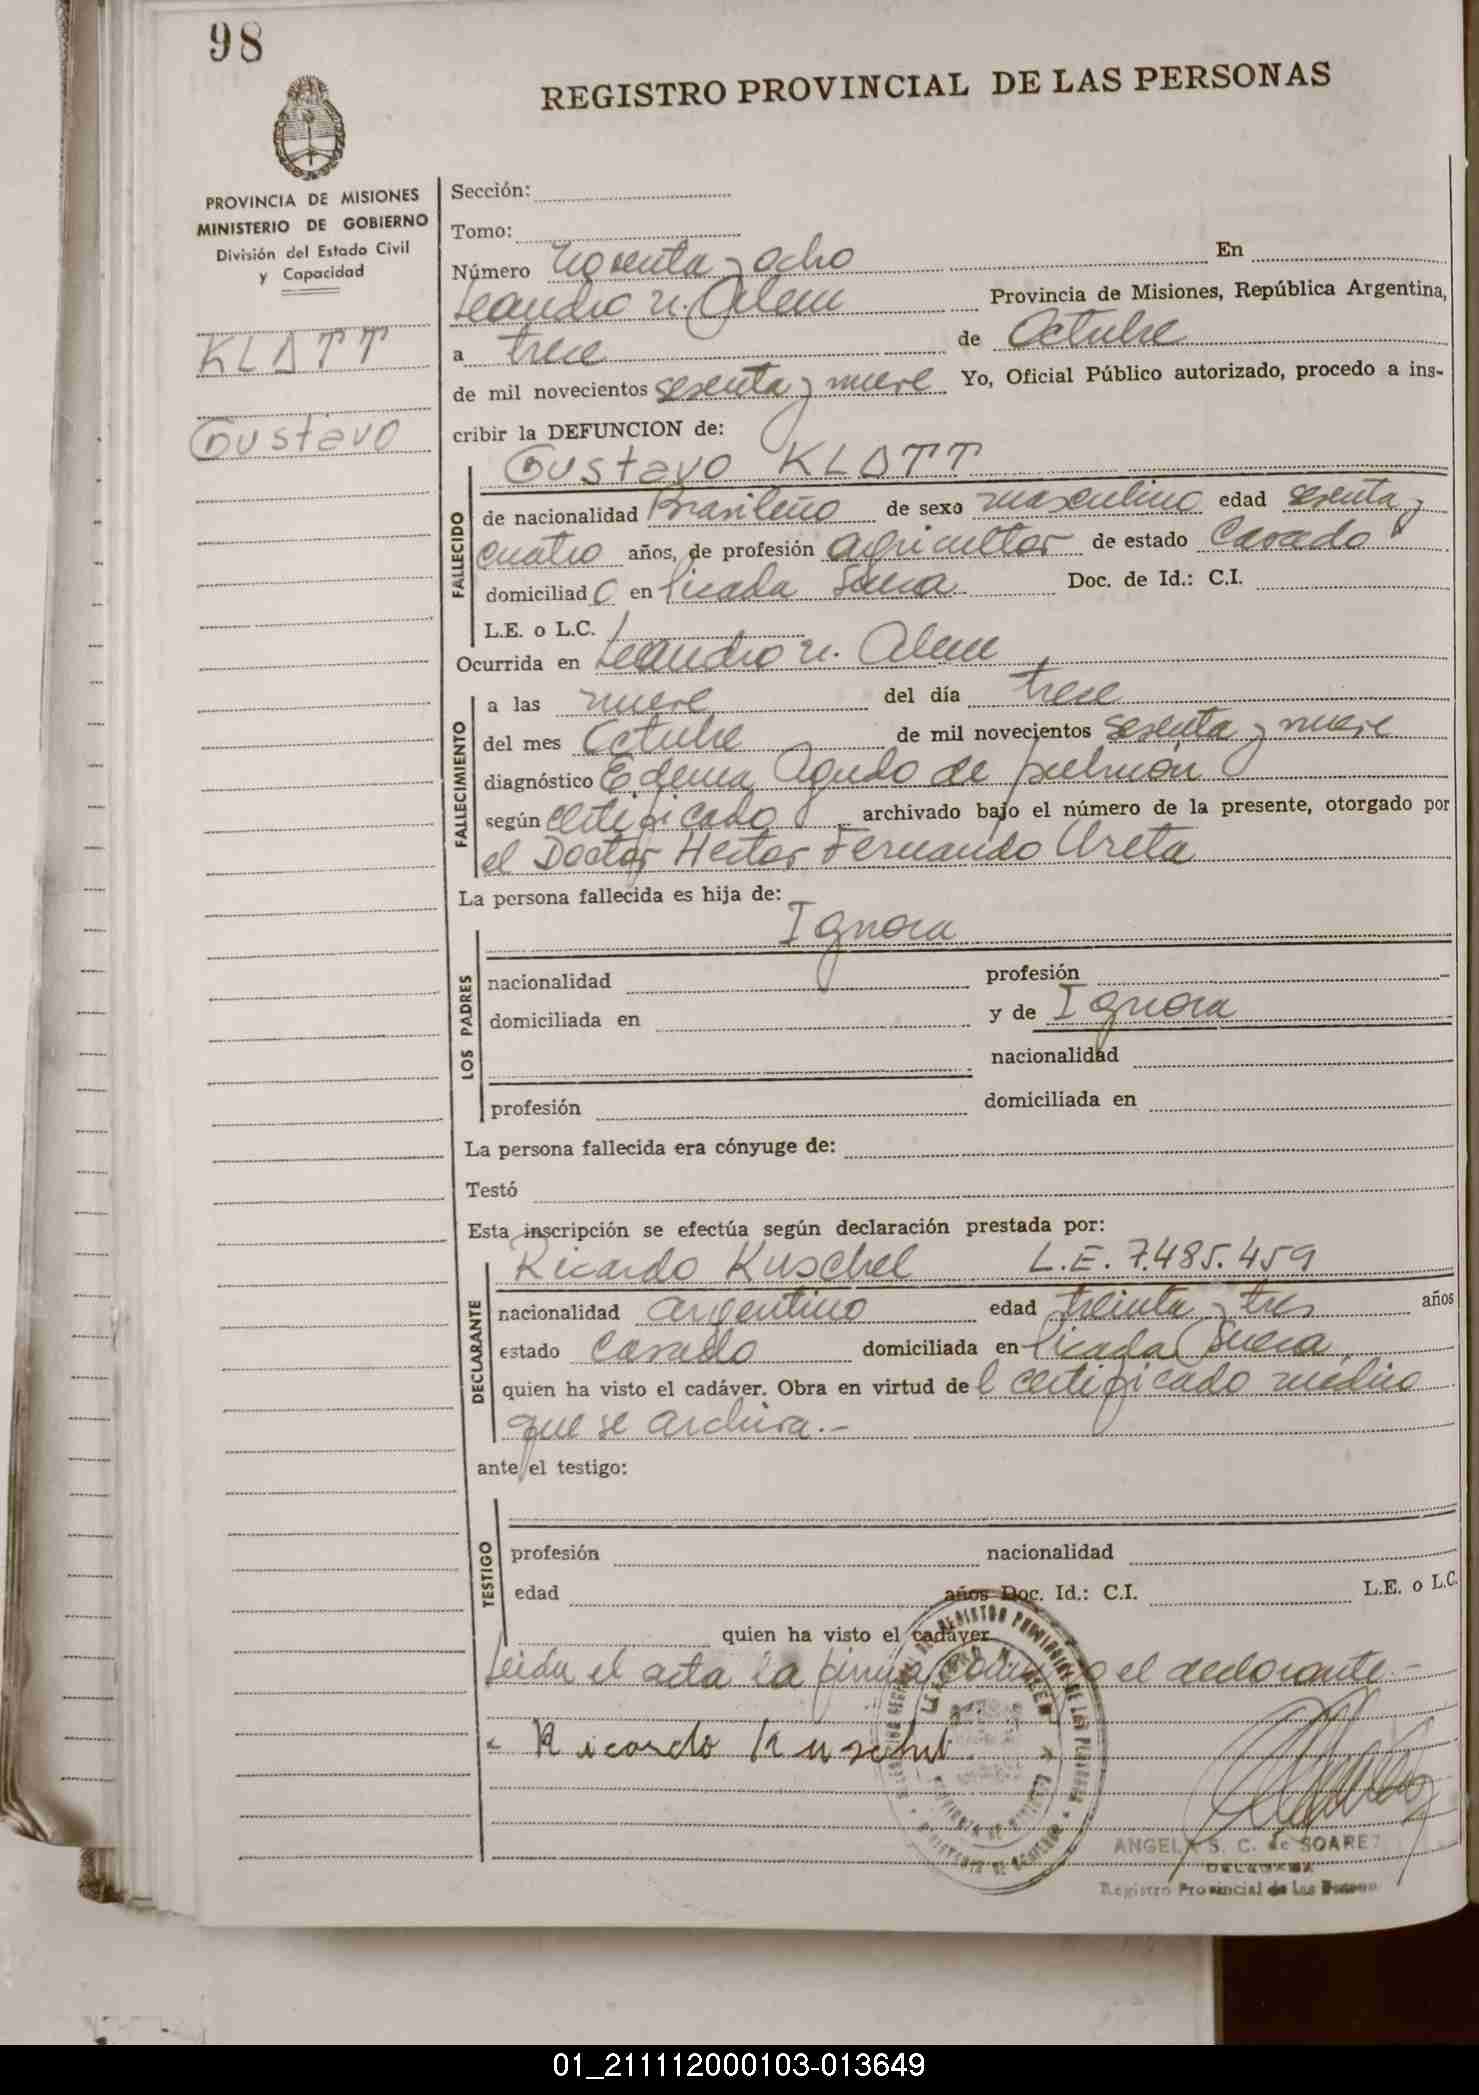 98
REGISTRO PROVINCIAL DE LAS PERSONAS
PROVINCIA DE MISIONES
MINISTERIO DE GOBIERNO
División del Estado Civil
y Capacidad
KLATT
Gustavo
Sección:
Tomo:
Número Noventa y ocho En
Leandro N. Alem Provincia de Misiones, República Argentina,
a trece de Octubre
de mil novecientos sesenta y nueve Yo, Oficial Público autorizado, procedo a ins-
cribir la DEFUNCION de:
Gustavo KLATT
FALLECIDO
de nacionalidad Brasileño de sexo masculino edad sesenta y
cuatro años, de profesión agricultor de estado Casado
domiciliado en Picada Sueca Doc. de Id.: C.I.
L.E. o L.C.
Ocurrida en Leandro N. Alem
FALLECIMIENTO
a las nueve del día trece
del mes Octubre de mil novecientos sesenta y nueve
diagnóstico Edema Agudo de pulmón
según certificado archivado bajo el número de la presente, otorgado por
el Doctor Hector Fernando Ureta
La persona fallecida es hija de:
LOS PADRES
Ignora
nacionalidad profesión
domiciliada en y de Ignora
nacionalidad
profesión domiciliada en
La persona fallecida era cónyuge de:
Testó
Esta inscripción se efectúa según declaración prestada por:
DECLARANTE
Ricardo Kuschel L.E. 7.485.459
nacionalidad argentino edad treinta y tres años
estado Casado domiciliada en Picada Sueca
quien ha visto el cadáver. Obra en virtud del certificado médico
que se archiva.-
ante el testigo:
TESTIGO
profesión nacionalidad
edad años Doc. Id.: C.I. L.E. o L.C.
quien ha visto el cadáver
Leida el acta la firma conmigo el declarante.-
Ricardo Kuschel
ANGELA S. C. de SOAREZ
DELEGADA
Registro Provincial de Las Personas
01_211112000103-013649